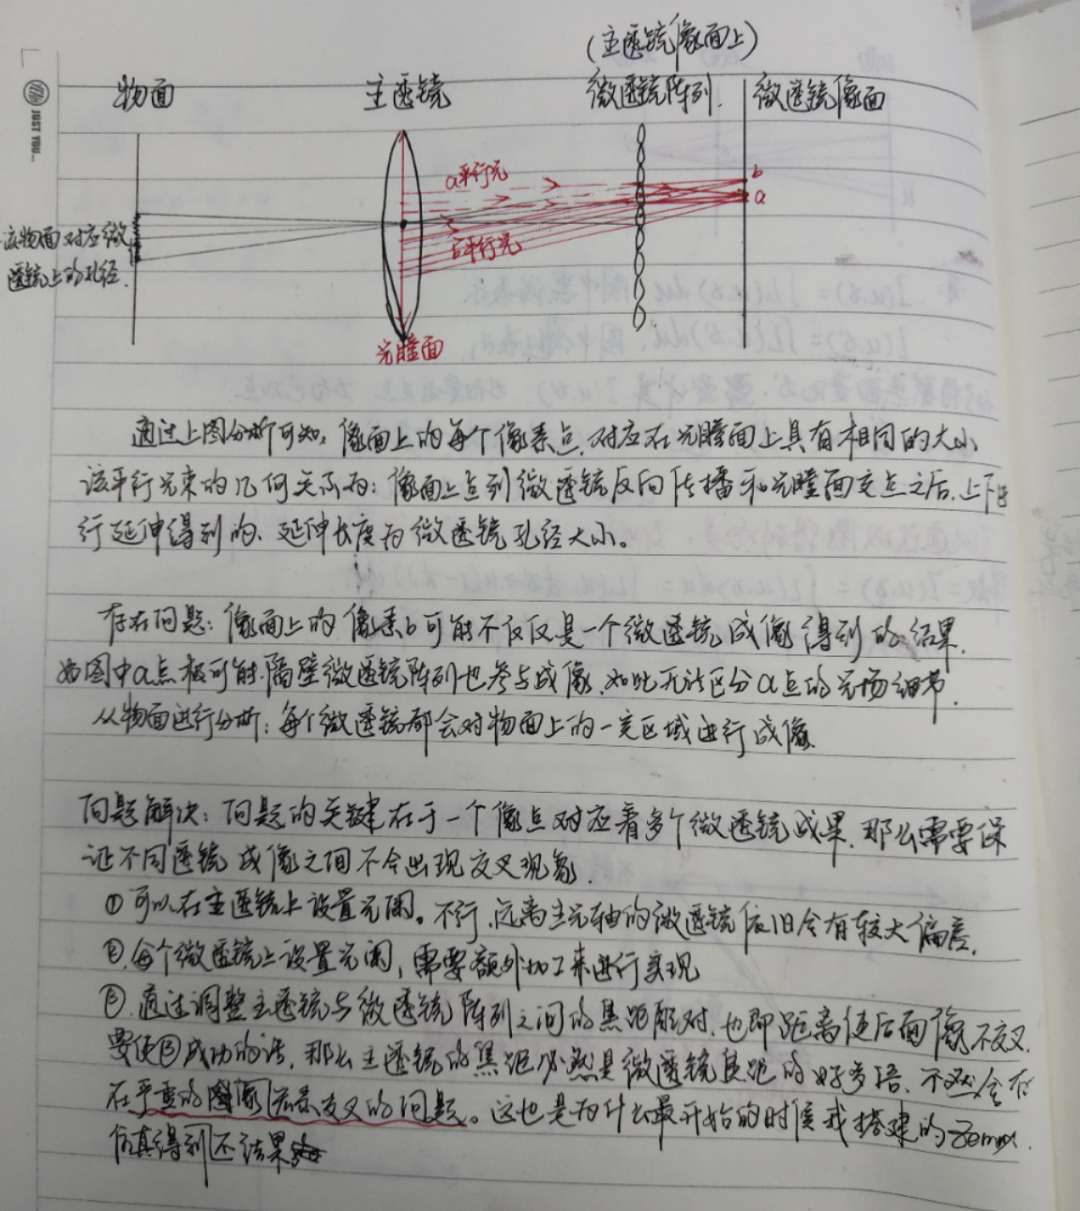 (主透镜像面上)
物面 主透镜 微透镜阵列. 微透镜像面
JUST YOU...
a平行光
b
a
b平行光
该物面对应微
透镜上的孔径.
光瞳面
通过上图分析可知, 像面上的每个像素点, 对应在光瞳面上具有相同的大小
该平行光束的几何关系为: 像面上点到微透镜反向传播和光瞳面交点之后, 上下进
行延伸得到的、延伸长度为微透镜孔径大小。
存在问题: 像面上的像素b可能不仅仅是一个微透镜成像得到的结果.
如图中a点极可能隔壁微透镜阵列也参与成像, 如此无法区分a点的光场细节.
从物面进行分析: 每个微透镜都会对物面上的一定区域进行成像
问题解决: 问题的关键在于一个像点对应着多个微透镜成果. 那么需要保
证不同透镜成像之间不会出现交叉现象.
①可以在主透镜上设置光阑。不行, 远离主光轴的微透镜依旧会有较大偏差.
②.每个微透镜上设置光阑, 需要额外加工来进行实现
③.通过调整主透镜与微透镜阵列之间的焦距配对. 也即距离使后面像不交叉.
要使③成功的话, 那么主透镜的焦距必然是微透镜焦距的好多倍、不然会存
在严重的图像交叉的问题。这也是为什么最开始的时候我搭建的zemax
仿真得到结果